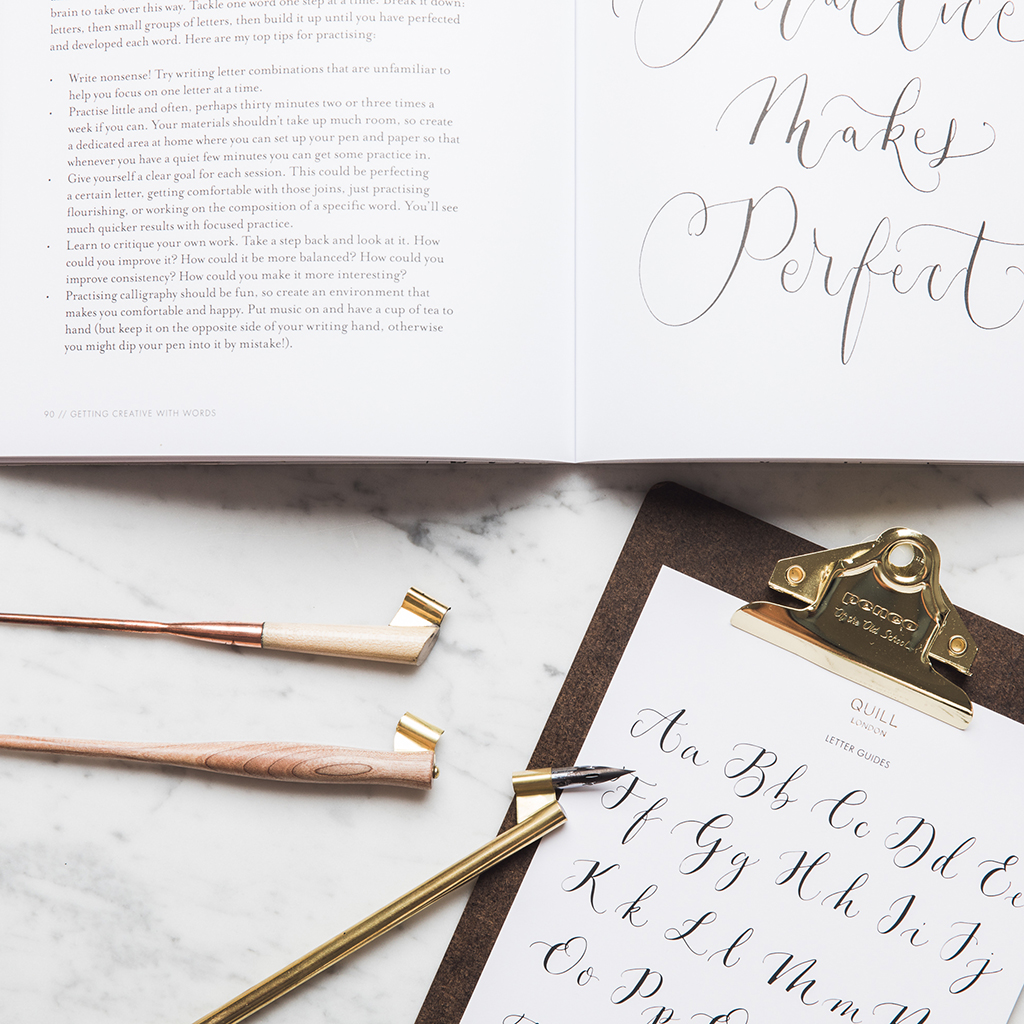 brain to take over this way. Tackle one word one step at a time. Break it down:
letters, then small groups of letters, then build it up until you have perfected
and developed each word. Here are my top tips for practising:
• Write nonsense! Try writing letter combinations that are unfamiliar to
help you focus on one letter at a time.
• Practise little and often, perhaps thirty minutes two or three times a
week if you can. Your materials shouldn't take up much room, so create
a dedicated area at home where you can set up your pen and paper so that
whenever you have a quiet few minutes you can get some practice in.
• Give yourself a clear goal for each session. This could be perfecting
a certain letter, getting comfortable with those joins, just practising
flourishing, or working on the composition of a specific word. You'll see
much quicker results with focused practice.
• Learn to critique your own work. Take a step back and look at it. How
could you improve it? How could it be more balanced? How could you
improve consistency? How could you make it more interesting?
• Practising calligraphy should be fun, so create an environment that
makes you comfortable and happy. Put music on and have a cup of tea to
hand (but keep it on the opposite side of your writing hand, otherwise
you might dip your pen into it by mistake!).
90 // GETTING CREATIVE WITH WORDS
Practice
Makes
Perfect
penco
QUILL
LONDON
LETTER GUIDES
Aa Bb Cc Dd Ee
Ff Gg Hh Ii Jj
Kk Ll Mm N
Oo Pp